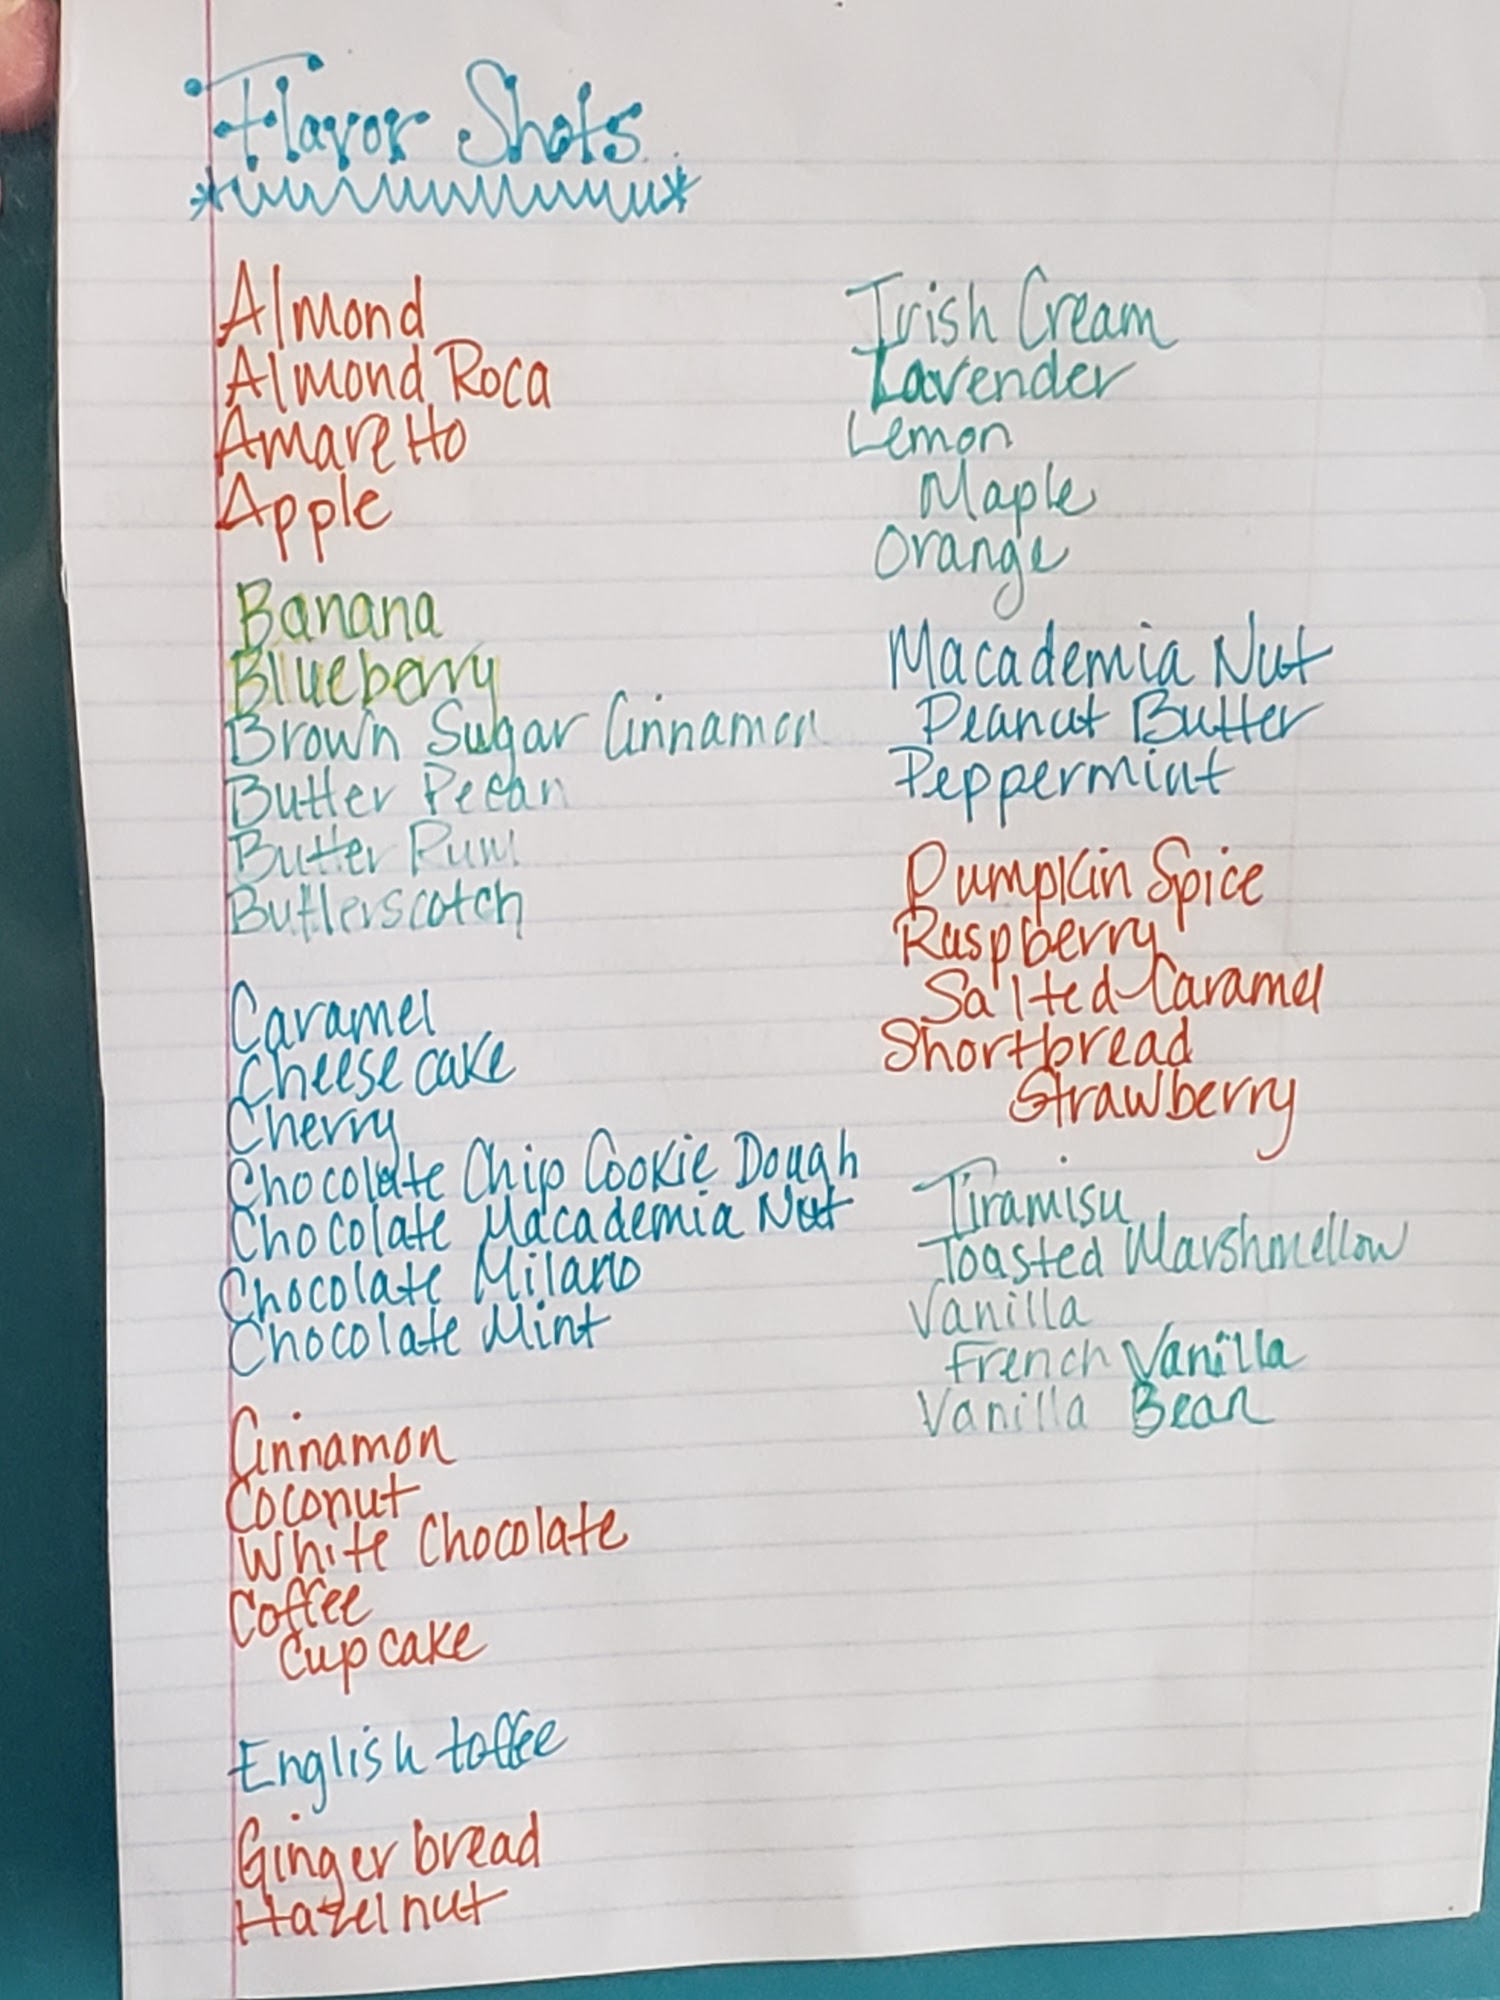 Flavor Shots
Almond
Almond Roca
Amaretto
Apple
Banana
Blueberry
Brown Sugar Cinnamon
Butter Pecan
Butter Rum
Butterscotch
Caramel
Cheese cake
Cherry
Chocolate Chip Cookie Dough
Chocolate Macademia Nut
Chocolate Milano
Chocolate Mint
Cinnamon
Coconut
White Chocolate
Coffee
Cup cake
English toffee
Ginger bread
Hazel nut
Irish Cream
Lavender
Lemon
Maple
Orange
Macademia Nut
Peanut Butter
Peppermint
Pumpkin Spice
Raspberry
Salted Caramel
Shortbread
Strawberry
Tiramisu
Toasted Marshmellow
Vanilla
French Vanilla
Vanilla Bean